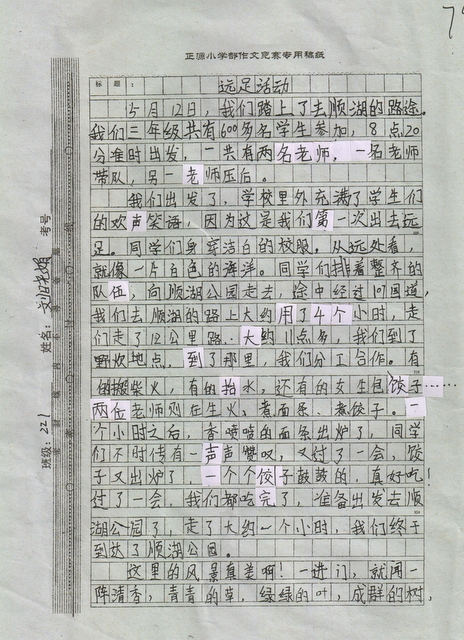 正源小学部作文竞赛专用稿纸
标题：远足活动
5月12日，我们踏上了去顺湖的路途。
我们三年级共有600多名学生参加，8点20
分准时出发，一共有两名老师，一名老师
带队，另一老师压后。
我们出发了，学校里外充满了学生们
的欢声笑语，因为这是我们第一次出去远
足。同学们身穿洁白的校服，从远处看，
就像一片白色的海洋。同学们排着整齐的
队伍，向顺湖公园走去，途中经过107国道，
我们去顺湖的路上大约用了4个小时，走
们走了12公里路。大约11点多，我们到了
野炊地点，到了那里，我们分工合作。有
的搬柴火，有的抬水，还有的女生包饺子……
两位老师则在生火，煮面条、煮饺子。一
个小时之后，香喷喷的面条出炉了，同学
们不时传有一声声赞叹，又过了一会，饺
子又出炉了，一个个饺子鼓鼓的，真好吃！
过了一会，我们都吃完了，准备出发去顺
湖公园了，走了大约一个小时，我们终于
到达了顺湖公园。
这里的风景真美啊！一进门，就闻一
阵清香，青青的草，绿绿的叶，成群的树，
考号
姓名：
班级：221